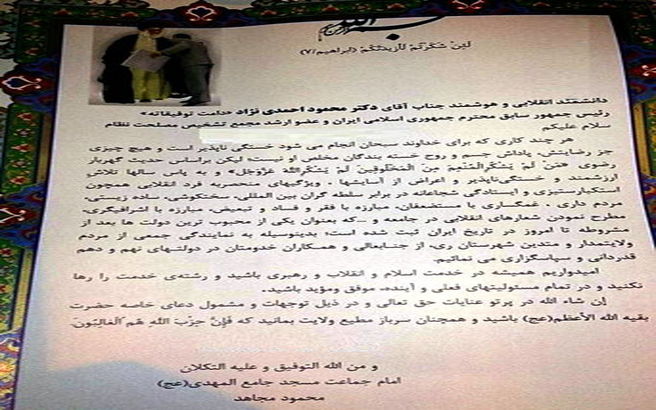 بسم الله الرحمن الرحیم
لَئِن شَکَرتُم لَأَزیدَنَّکُم (ابراهیم/۷)
دانشمند انقلابی و هوشمند جناب آقای دکتر محمود احمدی نژاد «دامت توفیقاته»
رئیس جمهور سابق محترم جمهوری اسلامی ایران و عضو ارشد مجمع تشخیص مصلحت نظام
سلام علیکم
هر چند کاری که برای خداوند سبحان انجام می شود خستگی ناپذیر است و هیچ چیزی
جز رضایتش، پاداش جسم و روح خسته بندگان مخلص او نیست؛ لیکن براساس حدیث گهربار
رضوی «مَن لَم یَشکُرِ المُنعِمَ مِنَ المَخلوقینَ لَم یَشکُرِ اللهَ عَزَّوَجَلَّ» و به پاس سالها تلاش
ارزشمند و خستگی‌ناپذیر و اعراض از آسایشها ، ویژگیهای منحصربه فرد انقلابی همچون
استکبارستیزی و ایستادگی شجاعانه در برابر سلطه گران بین المللی، سختکوشی، ساده زیستی،
مردم داری ، غمگساری با مستضعفان، مبارزه با فقر و فساد و تبعیض، مبارزه با اشرافیگری،
مطرح نمودن شعارهای انقلابی در جامعه و ...که بعنوان یکی از محبوب ترین دولت ها بعد از
مشروطه تا امروز در تاریخ ایران ثبت شده است؛ بدینوسیله به نمایندگی جمعی از مردم
ولایتمدار و متدین شهرستان ری، از جنابعالی و همکاران خدومتان در دولتهای نهم و دهم
قدردانی و سپاسگزاری می نمائیم.
امیدواریم همیشه در خدمت اسلام و انقلاب و رهبری باشید و رشته‌ی خدمت را رها
نکنید و در تمام مسئولیتهای فعلی و آینده، موفق ومؤید باشید.
إن شاء الله در پرتو عنایات حق تعالی و در ذیل توجهات و مشمول دعای خاصه حضرت
بقیه الله الأعظم(عج) باشید و همچنان سرباز مطیع ولایت بمانید که فَإِنَّ حِزْبَ اللَّهِ هُمُ الْغَالِبُونَ.
و من الله التوفیق و علیه التکلان
امام جماعت مسجد جامع المهدی(عج)
محمود مجاهد